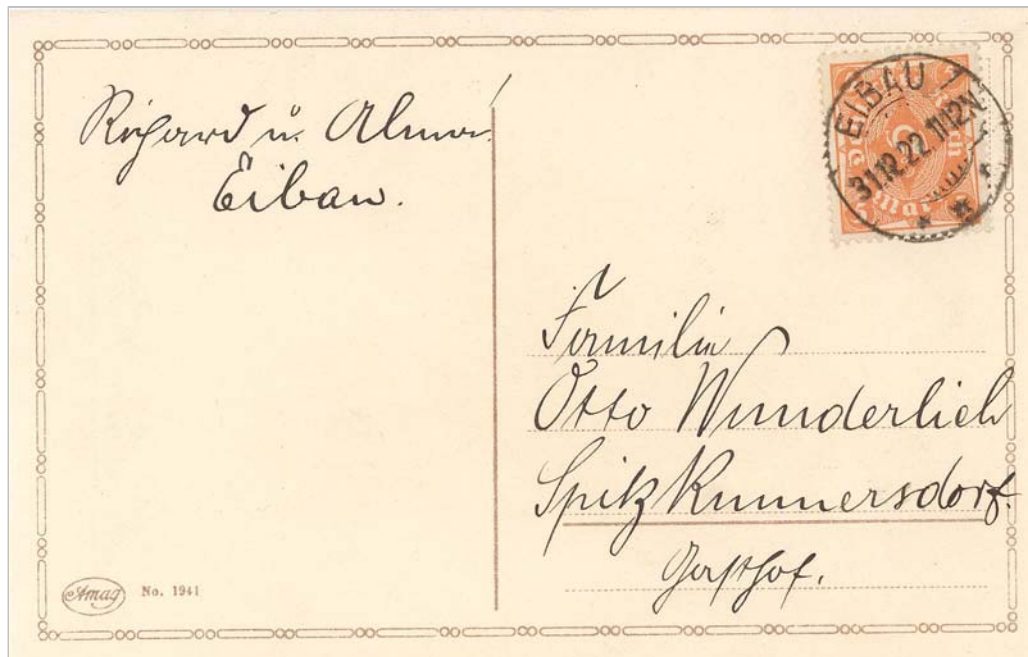 Richard u. Alma.
Eibau.
EIBAU
31.12.22. 11-12N
Familie
Otto Wunderlich
Spitzkunnersdorf.
Gasthof.
Amag
No. 1941